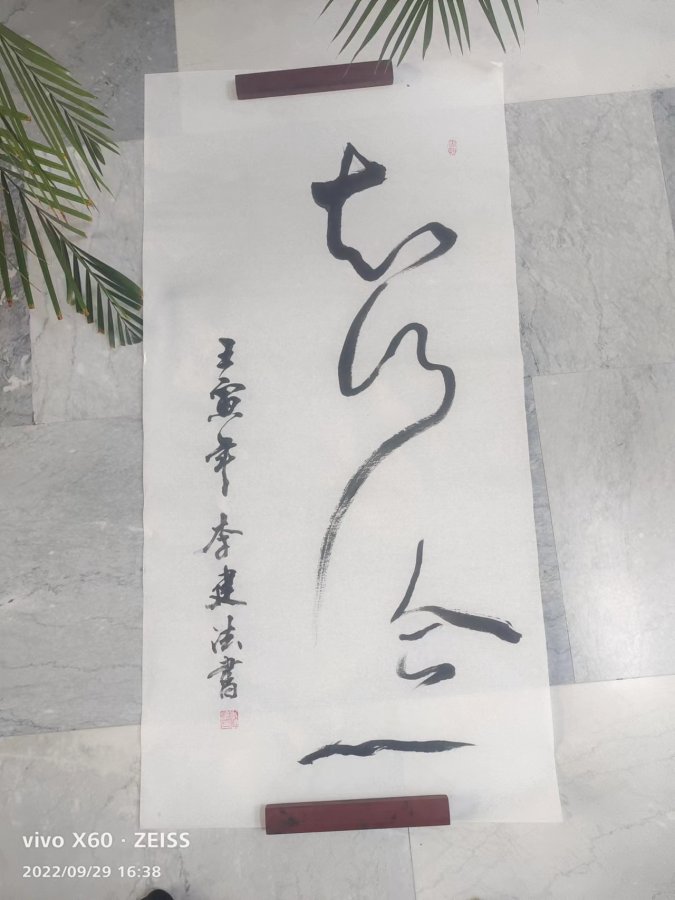 知行合一
壬寅年李建法書
vivo X60 · ZEISS
2022/09/29 16:38